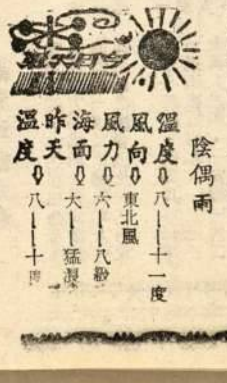 今日天氣
陰偶雨
溫度⇩八——十一度
風向⇩東北風
風力⇩六——八級
海面⇩大——猛浪
昨天
溫度⇩八——十度